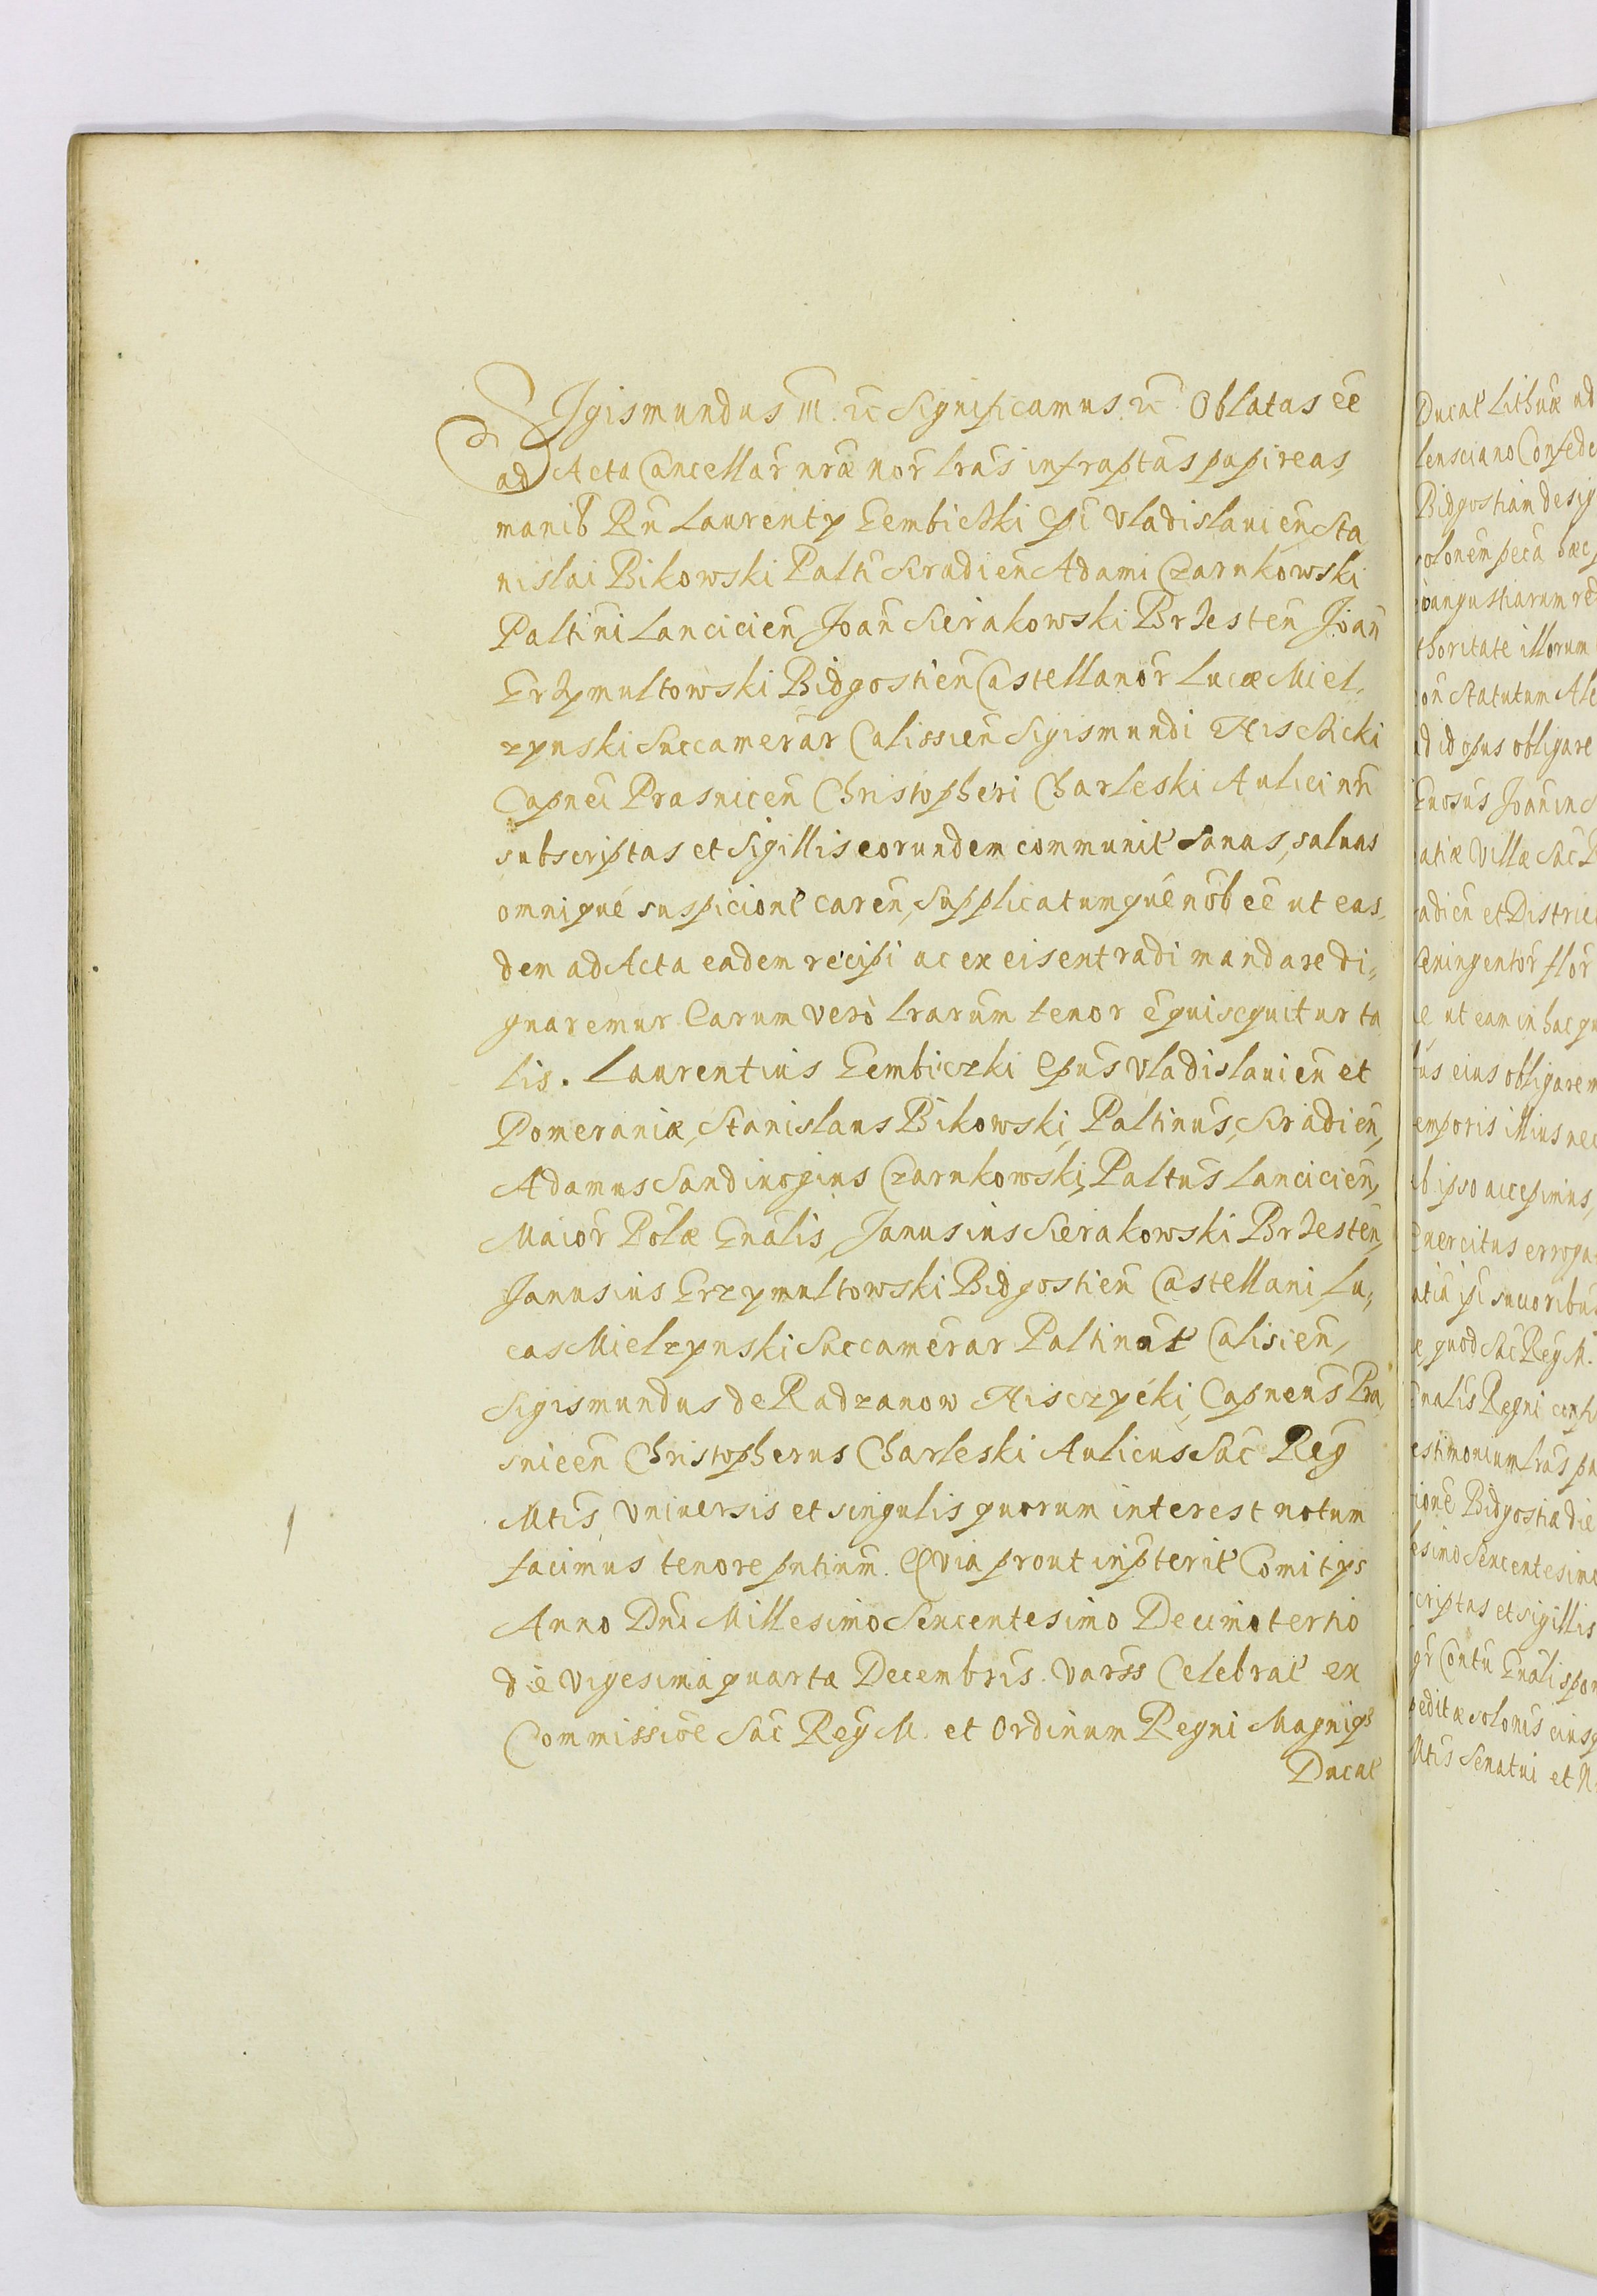 SJgismundus III. ec Significamus ec. Oblatas eē
ad Acta Cancellar̄ nr̄æ nor̄ lrās infraptas papireas,
manib Rn̄ Laurentÿ Gembiczki Ep̄i Vladislauien̄ Sta
nislai Bikowski Paltī Siradien̄ Adami Czarnkowski
Paltini Lancicien̄ Joan̄ Sierakowski Brzesten̄ Joan̄
Grzÿmultowski Bidgostien̄ Castellanor̄ Lucæ Miel,
zÿnski Succamerar̄ Calissien̄ Sigismundi Hisczicki
Capnei Prasnicen̄ Christopheri Charleski Aulici nr̄i
subscriptas et Sigillis eorundem communit̓ sanas, saluas
omniqué suspicione̓ caren̄, Supplicatumque nōb eē ut eas,
dem ad Acta eadem recipi ac ex eis extradi mandare di,
gnaremur Earum verò lrarūm tenor ē qui sequitur ta
lis. Laurentius Gembiczki Ep̄us Vladislauien̄ et
Pomeraniæ, Stanislaus Bikowski, Paltinūs, Siradien̄,
Adamus Sandiuogius Czarnkowski, Paltūs Lancicien̄,
Maior̄ Polæ Gnālis, Janusius Sierakowski Brzesten̄,
Janusius Grzÿmultowski Bidgostien̄ Castellani, Lu,
cas Mielzÿnski Succamerar Paltinat̓ Calisien̄,
Sigismundus de Radzanow Hisczÿcki, Capneūs Pra,
snicen̄ Christopherus Charleski Aulicus Sac̄ Reḡ
Mtis̄, Vniuersis et singulis quorum interest notum
facimus tenore pn̄tium. Qvia prout in p̄terit̓ Comitÿs
Anno Dnī Millesimo Sexcentesimo Decimotertio
die Vigesima quarta Decembris. Vars̄s Celebrat̓ ex
Commissiōe Sac̄ Reḡ M. et Ordinum Regni Magniq̨
Ducat̓
Ducat̓ Lithuæ ad
lensciano Confede
Bidgostiam desig
solonem pecū hæc
angustiarum re
thoritate illorum
on̄ Statutum Ale
ad id opus obligare
Gnosus Joan̄ in
atiæ Villæ Sac̄
adien̄ et Distric
ceningentor̄ flor̄
ut eam in hac qu
us eius obligarem
emporis illius nec
ab ipso accepimus,
Exercitus erroga
e quod Sac̄ Reḡ M.
Gnalis Regni
estimonium lrās pa
tione Bidgostiæ die
esimo Sexcentesimo
criptas et sigillis
peditæ solonis eius
Mtis Senatui et